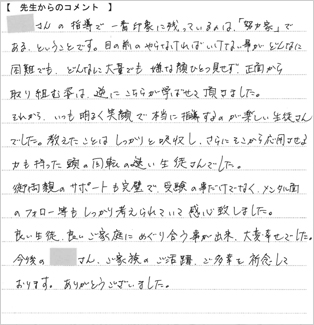 【 先生からのコメント 】
さんの指導で一番印象に残っているのは、「努力家」で
ある、ということです。目の前のやらなければいけない事がどんなに
困難でも、どんなに大量でも嫌な顔ひとつ見せず、正面から
取り組む姿は、逆にこちらが学ばせて頂きました。
それから、いつも明るく笑顔で本当に指導するのが楽しい生徒さん
でした。教えたことはしっかりと吸収し、さらにそこから応用させる
力も持った頭の回転の速い生徒さんでした。
御両親のサポートも完璧で、受験の事だけでなく、メンタル面
のフォロー等もしっかり考えられていて感心致しました。
良い生徒、良いご家庭にめぐり合う事が出来、大変幸せでした。
今後の さん、ご家族のご活躍、ご多幸を祈念して
おります。ありがとうございました。